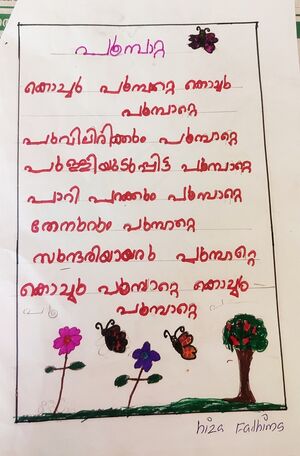 പൂമ്പാറ്റ
കൊച്ചു പൂമ്പാറ്റെ കൊച്ചു
പൂമ്പാറ്റെ
പൂവിലിരിക്കും പൂമ്പാറ്റെ
പുള്ളിയുടുപ്പിട്ട പൂമ്പാറ്റെ
പാറി പറക്കും പൂമ്പാറ്റെ
തേനൂറും പൂമ്പാറ്റെ
പൂമ്പാറ്റെ
കൊച്ചു പൂമ്പാറ്റെ കൊച്ചു
പൂമ്പാറ്റെ
hiza Fathima